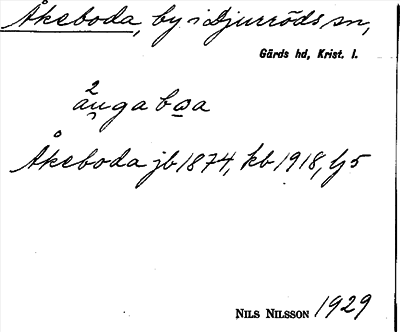 Åkeboda, by i Djurröds sn,
Gärds hd, Krist. l.
2
ån̥ga bo̲a
Åkeboda jb 1874, kb 1918, Lj 5
NILS NILSSON 1929